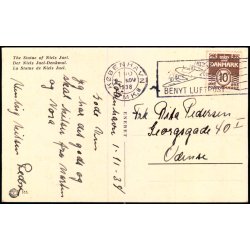 The Statue of Niels Juel.
Der Niels Juel-Denkmal.
La Statue de Niels Juel.
København 1-11-38
Gode Ven
Jeg har det godt og
skal hilse fra Morten
og Nora
Kærlig Hilsen
Peder
ENERET
KØBENHAVN
NOV
1938
BENYT LUFTPOST
DANMARK
10
Frk Rita Pedersen
Georgsgade 40 I
Odense